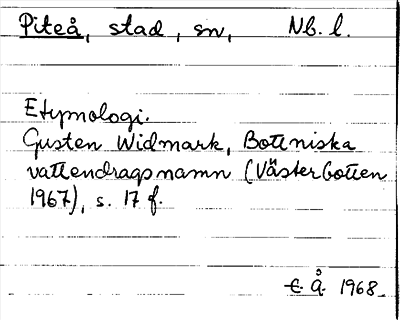 Piteå, stad, sn, Nb. l.
Etymologi.
Gusten Widmark, Bottniska
vattendragsnamn (Västerbotten
1967), s. 17 f.
E. Å. 1968